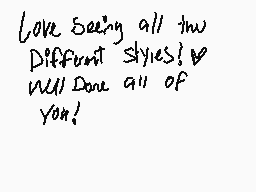 Love seeing all the
Different styles! ♥
Well Done all of
You!